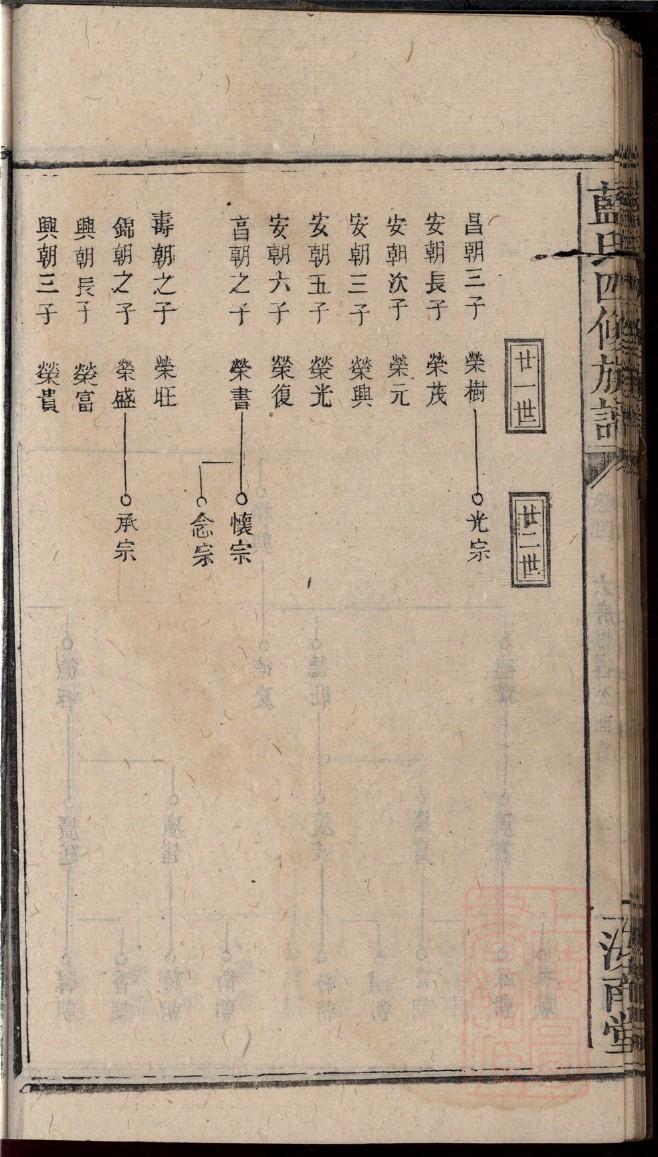 藍氏四修族譜
汝南堂
廿一世
廿二世
昌朝三子 榮樹 光宗
安朝長子 榮茂
安朝次子 榮元
安朝三子 榮興
安朝五子 榮光
安朝六子 榮復
亯朝之子 榮書 懷宗
念宗
壽朝之子 榮旺
錦朝之子 榮盛 承宗
興朝長子 榮富
興朝三子 榮貴